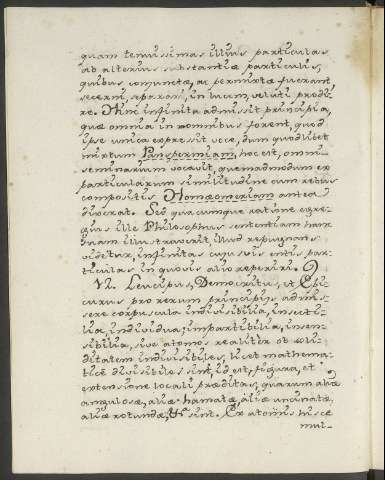 quam tenuissimas illius particulas
ab alterius substantiæ particulis,
quibus connectæ, ac permixtæ fuerant
secerni, separari, in lucem, veluti prodi-
re. Hinc infinita admissit principia,
quæ omnia in omnibus forent, quod
ipse unica expressit voce, dum quodlibet
mixtum Panspermiam, hoc est, omni-
seminarium vocavit, quemadmodum ex
particularum similitudine cum rebus
compositis Homæomeriam antea
dixerat. Sed quacumque ratione egre-
gius ille Philosophus sententiam hanc
suam illustraverit, illud repugnans
videtur, infinitas cujusvis entis par-
ticulas in quovis alio reperiri.
VI. Leucipus, Democritus, et Epi-
curus pro rerum principijs admi-
sere corpuscula indivisibilia, insecti-
lia, individua, impartibilia, insen-
sibilia, sive atomos realiter ob soli-
ditatem indivisibiles, licet mathema-
ticè divisibiles sint, id est, figura, et
extensione locali præditas, quarum aliæ
angulosæ, aliæ hamatæ, aliæ uncinatæ,
aliæ rotundæ, &c sint. Ex atomis hisce
mul-